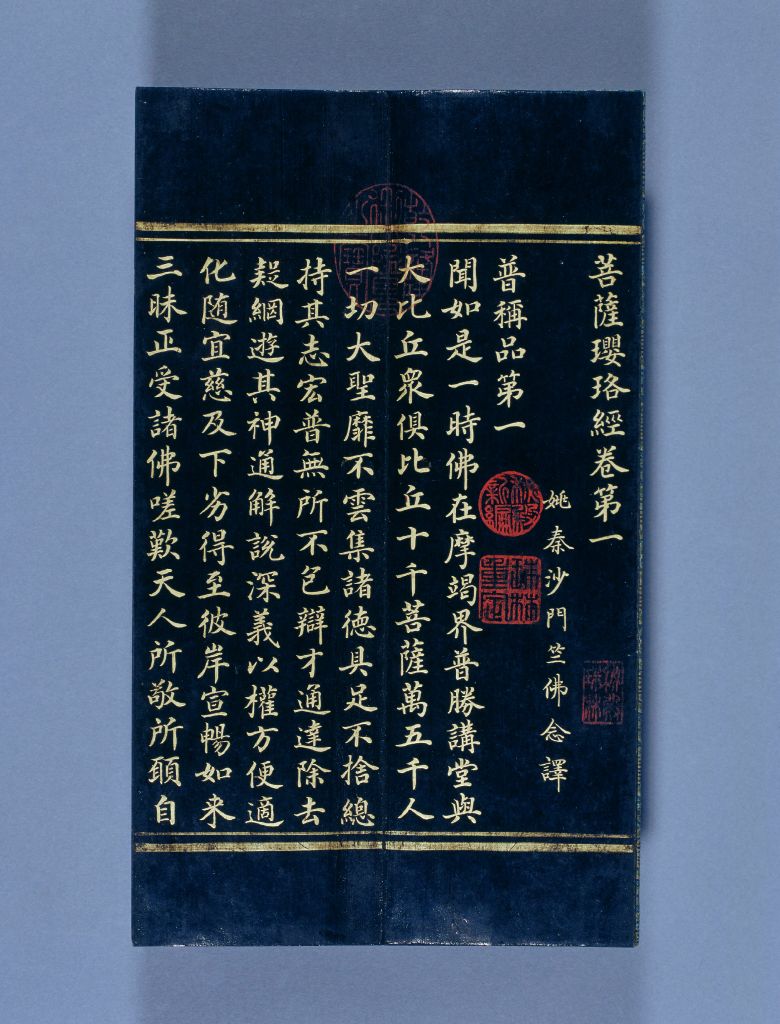 菩薩瓔珞經卷第一
姚秦沙門竺佛念譯
普稱品第一
聞如是一時佛在摩竭界普勝講堂與
大比丘眾俱比丘十千菩薩萬五千人
一切大聖靡不雲集諸德具足不捨總
持其志宏普無所不包辯才通達除去
疑網遊其神通解說深義以權方便適
化随宜慈及下劣得至彼岸宣暢如来
三昧正受諸佛嗟歎天人所敬所願自